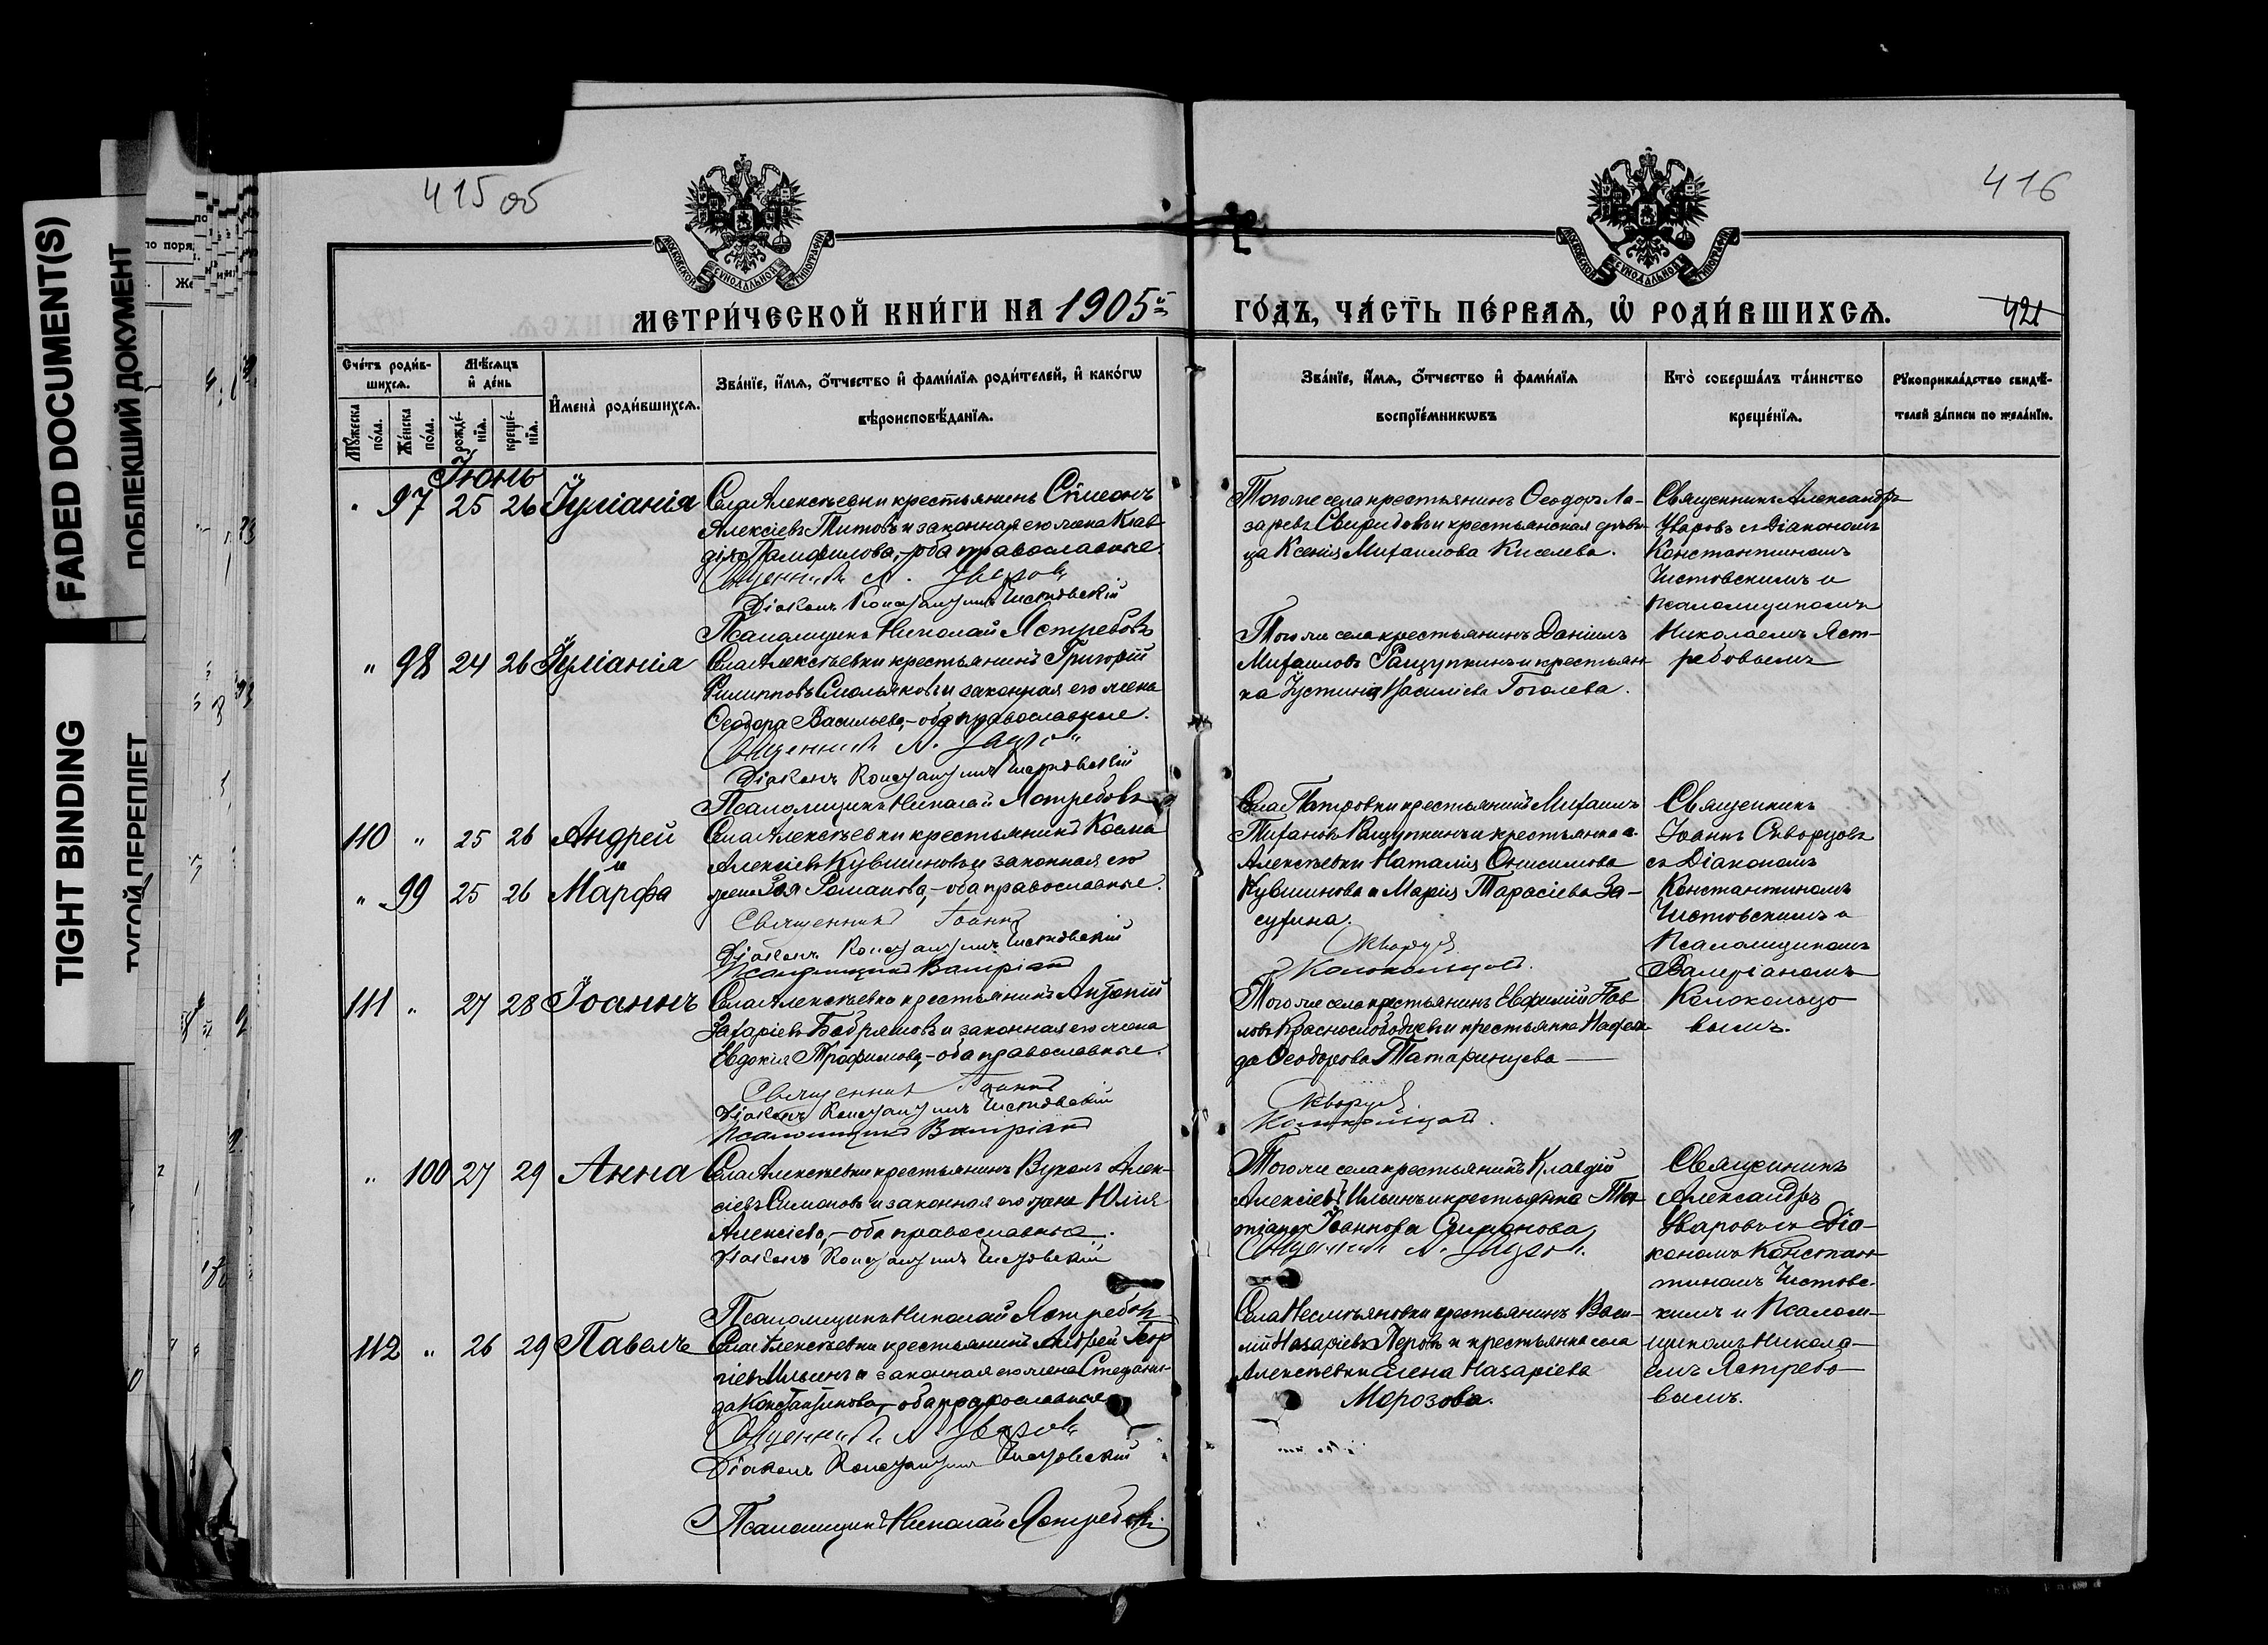 FADED DOCUMENT(S)
ПОБЛЕКШИЙ ДОКУМЕНТ
TIGHT BINDING
ТУГОЙ ПЕРЕПЛЕТ
415 об
416
МОСКОВСКОЙ СУНОДАЛЬНОЙ ТИПОГРАФІИ
МОСКОВСКОЙ СУНОДАЛЬНОЙ ТИПОГРАФІИ
МЕТРИ́ЧЕСКОЙ КНИ́ГИ НА 1905й
ГО́ДЪ, ЧА́СТЬ ПЕ́РВАѦ, Ѿ РОДИ́ВШИХСѦ.
421
Сче́тъ роди́в-
шихсѧ.
Мѣ́сѧцъ
и҆ де́нь
Мꙋ́жеска
по́ла.
Же́нска
по́ла.
рожде́-
нїѧ.
креще́-
нїѧ.
И҆мена̀ роди́вшихсѧ.
Зва́нїе, и҆́мѧ, о҆́тчество и҆ фами́лїѧ роди́телей, и҆ како́гѡ
вѣроисповѣ́данїѧ.
Зва́нїе, и҆́мѧ, о҆́тчество и҆ фами́лїѧ
воспрїе́мникѡвъ
Кто̀ соверша́лъ та́инство
креще́нїѧ.
Рꙋкоприкла́дство свидѣ́-
телей за́писи по жела́нїю.
Іюнь
" 97 25 26 Іуліанія
Села Алексѣевки крестьянинъ Сѵмеонъ
Алексіевъ Титовъ и законная его жена Клав-
дія Памфилова, - оба православные.
Священникъ А. Уваровъ
Діаконъ Константинъ Чистовскій
Псаломщикъ Николай Ястребовъ
Того же села крестьянинъ Ѳеодоръ Ла-
заревъ Свиридовъ и крестьянская дѣви-
ца Ксенія Михаилова Киселева.
Священникъ Александръ
Уваровъ съ Діакономъ
Константиномъ
Чистовскимъ и
Псаломщикомъ
Николаемъ Яст-
ребовымъ
" 98 24 26 Іуліанія
Села Алексѣевки крестьянинъ Григорій
Филипповъ Смольяковъ и законная его жена
Ѳеодора Васильева, - оба православные.
Священникъ А. Уваровъ
Діаконъ Константинъ Чистовскій
Псаломщикъ Николай Ястребовъ
Того же села крестьянинъ Даніилъ
Михаиловъ Ращупкинъ и крестьян-
ка Іустинія Василіева Гоголева.
110 " 25 26 Андрей
и
" 99 25 26 Марѳа
Села Алексѣевки крестьянинъ Косма
Алексіевъ Кувшиновъ и законная его
жена Зоя Романова, - оба православные.
Священникъ Іоаннъ
Діаконъ Константинъ Чистовскій
Псаломщикъ Валеріанъ
Села Петровки крестьянинъ Михаилъ
Тихановъ Ращупкинъ и крестьянка с.
Алексѣевки Наталія Онисимова
Кувшинова и Марія Тарасіева За-
сухина.
Скворцовъ
Колокольцовъ.
Священникъ
Іоаннъ Скворцовъ
съ Діакономъ
Константиномъ
Чистовскимъ и
Псаломщикомъ
Валеріаномъ
Колокольцо-
вымъ.
111 " 27 28 Іоаннъ
Села Алексѣевки крестьянинъ Антоній
Захаріевъ Бобряшовъ и законная его жена
Евдокія Трофимова, - оба православные.
Священникъ Іоаннъ
Діаконъ Константинъ Чистовскій
Псаломщикъ Валеріанъ
Того же села крестьянинъ Евфимій Пав-
ловъ Краснослободцевъ и крестьянка Надеж-
да Ѳеодорова Татаринцева
Скворцовъ
Колокольцовъ.
" 100 27 29 Анна
Села Алексѣевки крестьянинъ Вуколъ Алек-
сіевъ Симоновъ и законная его жена Юлія
Алексіева, - оба православные.
Діаконъ Константинъ Чистовскій
Псаломщикъ Николай Ястребовъ
Того же села крестьянинъ Клавдій
Алексіевъ Ильинъ и крестьянка Та-
тіана Іоаннова Симонова
Священникъ А. Уваровъ.
Священникъ
Александръ
Уваровъ съ Діа-
кономъ Констан-
тиномъ Чистовс-
кимъ и Псалом-
щикомъ Никола-
емъ Ястребо-
вымъ.
112 " 26 29 Павелъ
Села Алексѣевки крестьянинъ Андрей Геор-
гіевъ Ильинъ и законная его жена Степани-
да Константинова, - оба православные
Священникъ А. Уваровъ
Діаконъ Константинъ Чистовскій
Псаломщикъ Николай Ястребовъ
Села Несмѣяновки крестьянинъ Васи-
лій Назаріевъ Перовъ и крестьянка села
Алексѣевки Елена Назаріева
Морозова.